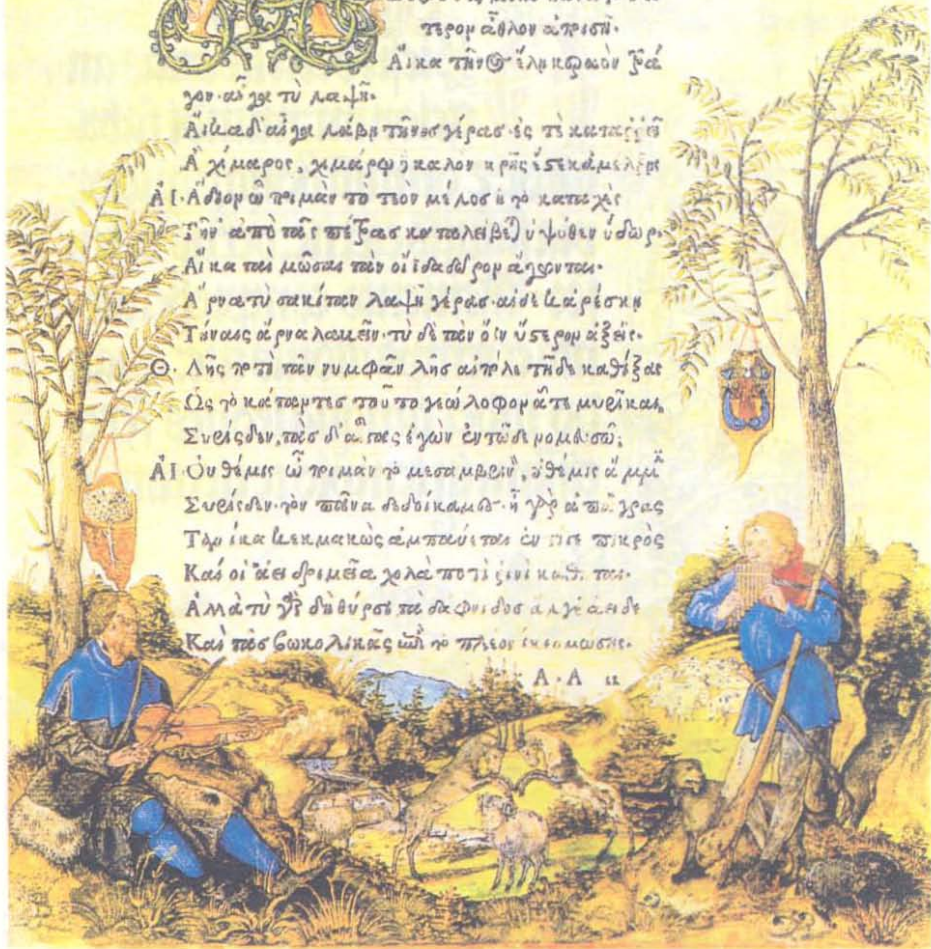 τερον ἆθλον ἀποισῇ.
Αἴκα τῆνΘ ἕλῃ κεραὸν τρά
γον, αἶγα τὺ λαψῇ.
Αἴκα δ' αἶγα λάβῃ τῆνος γέρας, ἐς τὲ καταρρεῖ
Ἁ χίμαρος, χιμάρῳ δὲ καλὸν κρῆς ἔστε κ' ἀμέλξῃς
ΑΙ. Ἅδιον ὦ ποιμὰν τὸ τεὸν μέλος ἢ τὸ καταχὲς
Τῆν' ἀπὸ τᾶς πέτρας καταλείβεται ὑψόθεν ὕδωρ.
Αἴκα ταὶ μῶσαι τὰν οἴϊδα δῶρον ἄγωνται.
Ἄρνα τὺ σακίταν λαψῇ γέρας. αἰ δέ κ' ἀρέσκῃ
Τήναις ἄρνα λαβεῖν. τὺ δὲ τὰν ὄϊν ὕστερον ἀξεῖς.
Θ. Λῇς ποτὶ τᾶν νυμφᾶν λῇς αἰπόλε τῇδε καθίξας
Ὡς τὸ κάταντες τοῦτο γεώλοφον ἅτε μυρῖκαι,
Συρίσδεν, τὰς δ' αἶγας ἐγὼν ἐν τῷδε νομευσῶ;
ΑΙ. Οὐ θέμις ὦ ποιμὰν τὸ μεσαμβρινὸν, οὐ θέμις ἄμμιν
Συρίσδεν. τὸν πᾶνα δεδοίκαμες. ἦ γὰρ ἀπ' ἄγρας
Τανίκα κεκμακὼς ἀμπαύεται ἐντὶ γε πικρὸς
Καί οἱ ἀεὶ δριμεῖα χολὰ ποτὶ ῥινὶ κάθηται.
Ἀλλὰ τὺ γὰρ δὴ θύρσι τὰ δάφνιδος ἄλγε' ἄειδες
Καὶ τᾶς βωκολικᾶς ἐπὶ τὸ πλέον ἵκεο μώσης.
Α.Α ii